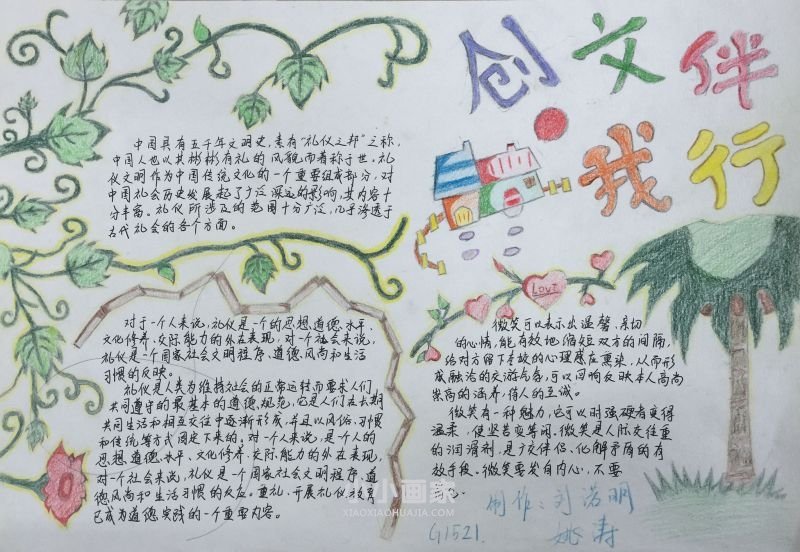 创文伴
我行
中国具有五千年文明史,素有"礼仪之邦"之称,
中国人也以其彬彬有礼的风貌而著称于世。礼
仪文明作为中国传统文化的一个重要组成部分,对
中国社会历史发展起了广泛深远的影响,其内容十
分丰富。礼仪所涉及的范围十分广泛,几乎渗透于
古代社会的各个方面。
对于一个人来说,礼仪是一个的思想道德水平、
文化修养、交际能力的外在表现,对一个社会来说,
礼仪是一个国家社会文明程序、道德风尚和生活
习惯的反映。
礼仪是人类为维持社会的正常运转而要求人们
共同遵守的最基本的道德规范,它是人们在长期
共同生活和相互交往中逐渐形成,并且以风俗、习惯
和传统等方式固定下来的。对一个人来说,是一个人的
思想、道德、水平、文化修养、交际能力的外在表现,
对一个社会来说,礼仪是一个国家社会文明程序、道
德风尚和生活习惯的反应。重礼、开展礼仪教育
已成为道德实践的一个重要内容。
LOVE
微笑可以表示出温馨、亲切
的心情,能有效地缩短双方的间隔,
给对方留下美好的心理感应熏染,从而形
成融洽的交游气氛,可以同响反映本人高尚
崇高的涵养,待人的至诚。
微笑有一种魅力,它可以时强硬者变得
温柔,使坚苦变等闲。微笑是人际交往重
的润滑剂,是广交伴侣、化解矛盾的有
效手段。微笑要发自内心,不要
制作:刘诺明
G1521. 姚
小画家
XIAOXIAOHUAJIA.COM